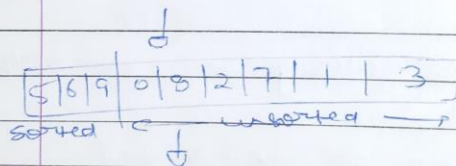 5 | 6 | 9 | 0 | 8 | 2 | 7 | 1 | 3
sorted ← unsorted →